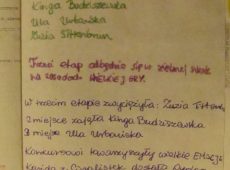 Kinga Budziszewska
Ula Urbańska
Zuzia Tittenbrun
Trzeci etap odbędzie się w zielonej
na zasadach WIELKIEJ GRY.
W trzecim etapie zwyciężyła: Zuzia Tittenbrun
2 miejsce zajęła Kinga Budziszewska
3 miejsce Ula Urbańska
Konkursowi towarzyszyły wielkie emocje
Każda z finalistek dostała